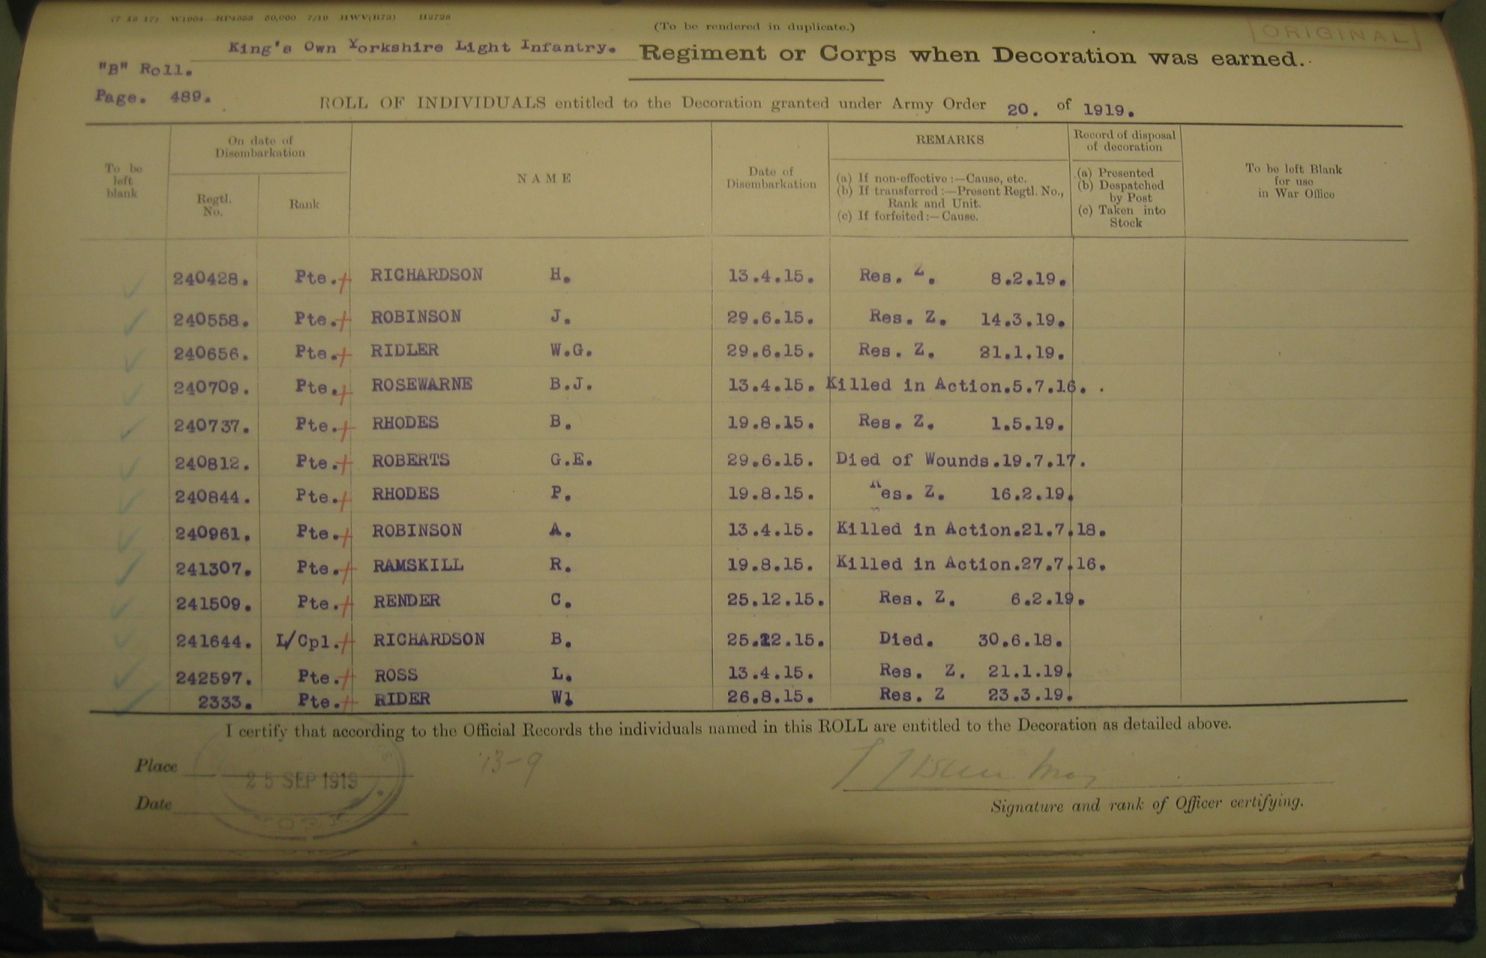 (To be rendered in duplicate.)
ORIGINAL
King's Own Yorkshire Light Infantry. Regiment or Corps when Decoration was earned.
"B" Roll.
Page. 489.
ROLL OF INDIVIDUALS entitled to the Decoration granted under Army Order 20. of 1919.
To be left blank
On date of Disembarkation
Regtl. No.
Rank
NAME
Date of Disembarkation
REMARKS
(a) If non-effective:—Cause, etc.
(b) If transferred:—Present Regtl. No., Rank and Unit.
(c) If forfeited:—Cause.
Record of disposal of decoration
(a) Presented
(b) Despatched by Post
(c) Taken into Stock
To be left Blank for use in War Office
240428. Pte. RICHARDSON H. 13.4.15. Res. Z. 8.2.19.
240558. Pte. ROBINSON J. 29.6.15. Res. Z. 14.3.19.
240656. Pte. RIDLER W.G. 29.6.15. Res. Z. 21.1.19.
240709. Pte. ROSEWARNE B.J. 13.4.15. Killed in Action.5.7.16.
240737. Pte. RHODES B. 19.8.15. Res. Z. 1.5.19.
240812. Pte. ROBERTS G.E. 29.6.15. Died of Wounds.19.7.17.
240844. Pte. RHODES P. 19.8.15. Res. Z. 16.2.19.
240961. Pte. ROBINSON A. 13.4.15. Killed in Action.21.7.18.
241307. Pte. RAMSKILL R. 19.8.15. Killed in Action.27.7.16.
241509. Pte. RENDER C. 25.12.15. Res. Z. 6.2.19.
241644. L/Cpl. RICHARDSON B. 25.12.15. Died. 30.6.18.
242597. Pte. ROSS L. 13.4.15. Res. Z. 21.1.19.
2333. Pte. RIDER W. 26.8.15. Res. Z 23.3.19.
I certify that according to the Official Records the individuals named in this ROLL are entitled to the Decoration as detailed above.
Place
25 SEP 1919
13-9
Date
Signature and rank of Officer certifying.